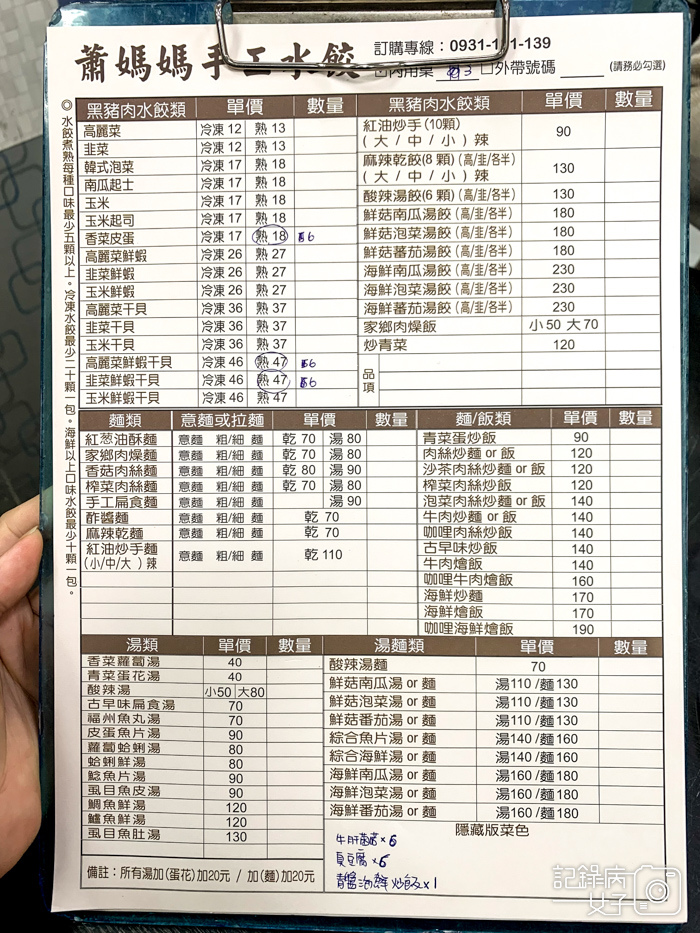 蕭媽媽手工水餃
訂購專線：0931-1 1-139
內用桌 外帶號碼 (請務必勾選)
◎水餃煮熟每種口味最少五顆以上。冷凍水餃最少二十顆一包。海鮮以上口味水餃最少十顆一包。
黑豬肉水餃類 單價 數量
高麗菜 冷凍 12 熟 13
韭菜 冷凍 12 熟 13
韓式泡菜 冷凍 17 熟 18
南瓜起士 冷凍 17 熟 18
玉米 冷凍 17 熟 18
玉米起司 冷凍 17 熟 18
香菜皮蛋 冷凍 17 熟 18 6
高麗菜鮮蝦 冷凍 26 熟 27
韭菜鮮蝦 冷凍 26 熟 27
玉米鮮蝦 冷凍 26 熟 27
高麗菜干貝 冷凍 36 熟 37
韭菜干貝 冷凍 36 熟 37
玉米干貝 冷凍 36 熟 37
高麗菜鮮蝦干貝 冷凍 46 熟 47 6
韭菜鮮蝦干貝 冷凍 46 熟 47 6
玉米鮮蝦干貝 冷凍 46 熟 47
黑豬肉水餃類 單價 數量
紅油炒手(10顆)
(大/中/小)辣 90
麻辣乾餃(8顆)(高/韭/各半)
(大/中/小)辣 130
酸辣湯餃(6顆)(高/韭/各半) 130
鮮菇南瓜湯餃(高/韭/各半) 180
鮮菇泡菜湯餃(高/韭/各半) 180
鮮菇蕃茄湯餃(高/韭/各半) 180
海鮮南瓜湯餃(高/韭/各半) 230
海鮮泡菜湯餃(高/韭/各半) 230
海鮮蕃茄湯餃(高/韭/各半) 230
家鄉肉燥飯 小50 大70
炒青菜 120
品項
麵類 意麵或拉麵 單價 數量
紅葱油酥麵 意麵 粗/細 麵 乾 70 湯 80
家鄉肉燥麵 意麵 粗/細 麵 乾 70 湯 80
香菇肉絲麵 意麵 粗/細 麵 乾 80 湯 90
榨菜肉絲麵 意麵 粗/細 麵 乾 70 湯 80
手工扁食麵 意麵 粗/細 麵 湯 90
酢醬麵 意麵 粗/細 麵 乾 70
麻辣乾麵 意麵 粗/細 麵 乾 70
紅油炒手麵
(小/中/大)辣 意麵 粗/細 麵 乾 110
麵/飯類 單價 數量
青菜蛋炒飯 90
肉絲炒麵 or 飯 120
沙茶肉絲炒麵 or 飯 120
榨菜肉絲炒飯 120
泡菜肉絲炒麵 or 飯 140
牛肉炒麵 or 飯 140
咖哩肉絲炒飯 140
古早味炒飯 140
牛肉燴飯 140
咖哩牛肉燴飯 160
海鮮炒麵 170
海鮮燴飯 170
咖哩海鮮燴飯 190
湯類 單價 數量
香菜蘿蔔湯 40
青菜蛋花湯 40
酸辣湯 小50 大80
古早味扁食湯 70
福州魚丸湯 70
皮蛋魚片湯 90
蘿蔔蛤蜊湯 80
蛤蜊鮮湯 80
鯰魚片湯 90
虱目魚皮湯 90
鯛魚鮮湯 120
鱸魚鮮湯 120
虱目魚肚湯 130
備註：所有湯加(蛋花)加20元 / 加(麵)加20元
湯麵類 單價 數量
酸辣湯麵 70
鮮菇南瓜湯 or 麵 湯110 /麵130
鮮菇泡菜湯 or 麵 湯110 /麵130
鮮菇蕃茄湯 or 麵 湯110 /麵130
綜合魚片湯 or 麵 湯140 /麵160
綜合海鮮湯 or 麵 湯140 /麵160
海鮮南瓜湯 or 麵 湯160 /麵180
海鮮泡菜湯 or 麵 湯160 /麵180
海鮮蕃茄湯 or 麵 湯160 /麵180
隱藏版菜色
×6
臭豆腐×6
青醬海鮮炒飯×1
記錄病女子